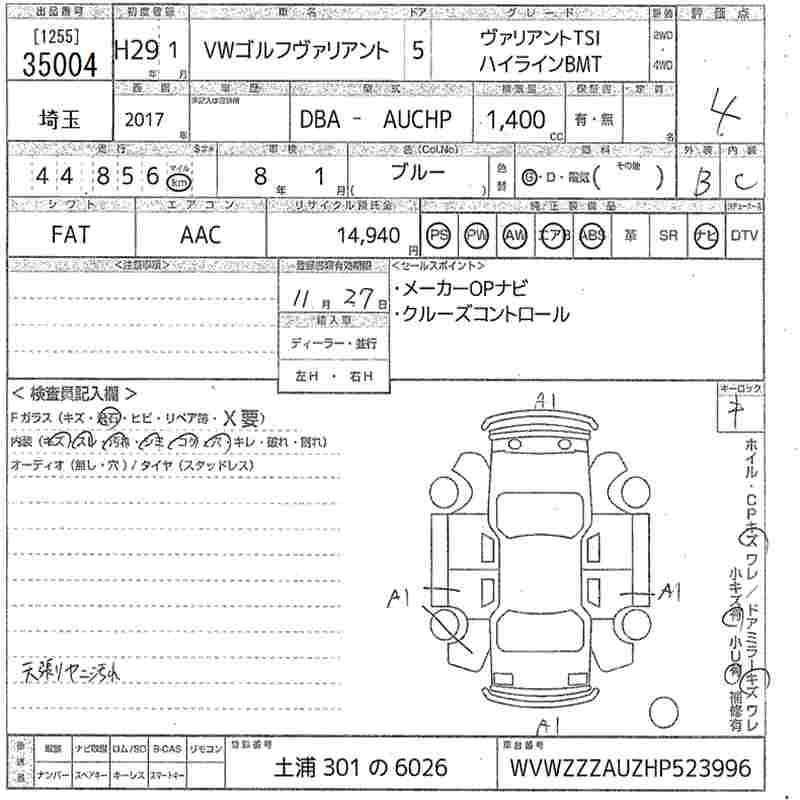 出品番号 初度登録 車名 ドア グレード 駆動 評価点
[1255]
35004
H29 1
年 月
VWゴルフヴァリアント
5
ヴァリアントTSI
ハイラインBMT
2WD
・
4WD
4
埼玉
西暦 車歴 型式 排気量 保証書 定員
2017
年
DBA - AUCHP
1,400
CC
有・無
名
走行 車検 色(Col.No) 燃料 外装 内装
44 856
マイル
km
8 年 1 月
ブルー
( )
色替
G・D・電気( その他 )
B
C
シフト エアコン リサイクル預託金 純正装備品
FAT
AAC
14,940
円
PS PW AW エアB ABS 革 SR ナビ DTV
<注意事項>
登録書類有効期限
11 月 27 日
輸入車
ディーラー・並行
左H ・ 右H
<セールスポイント>
・メーカーOPナビ
・クルーズコントロール
< 検査員記入欄 >
Fガラス (キズ・飛石・ヒビ・リペア跡・X要)
内装 (キズ・スレ・汚れ・シミ・コゲ・穴・キレ・破れ・割れ)
オーディオ (無し・穴) / タイヤ (スタッドレス)
天張りヤニ汚れ
A1
A1
A1
A1
キーロック
キ
ホイル・CPキズ ワレ / ドアミラーキズ ワレ
小キズ有 小U有 補修有
後送品
取説 ナビ取説 ロム/SD B-CAS リモコン
ナンバー スペアキー キーレス スマートキー
登録番号
土浦 301 の 6026
車台番号
WVWZZZAUZHP523996